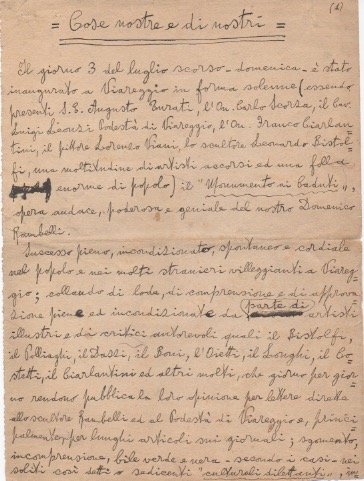 (1)
= Cose nostre e di nostri =
Il giorno 3 del luglio scorso - domenica - è stato
inaugurato a Viareggio in forma solenne (essendo
presenti S.E. Augusto Turati, l'On. Carlo Scorza, il Cav.
Luigi Leonzi Podestà di Viareggio, l'On. Franco Ciarlan-
tini, il pittore Lorenzo Viani, lo scultore Leonardo Bistol-
fi, una moltitudine di artisti accorsi ed una folla
enorme di popolo) il "Monumento ai Caduti",
opera audace, poderosa e geniale del nostro Domenico
Rambelli.
Successo pieno, incondizionato, spontaneo e cordiale
nel popolo e nei molti stranieri villeggianti a Viareg-
gio; collaudo di lode, di comprensione e di approva
zione piene ed incondizionate da parte di artisti
illustri e da critici autorevoli quali il Bistolfi,
il Pelliaghi, il Dassi, il Boni, l'Ojetti, il Longhi, il Co-
stetti, il Ciarlantini ed altri molti, che giorno per gior
no rendono pubblica la loro opinione per lettere dirette
allo scultore Rambelli ed al Podestà di Viareggio e, princi
palmente, per lunghi articoli sui giornali; sgomento,
incomprensione, bile verde e nera - secondo i casi - nei
soliti così detti o sedicenti "culturali dilettanti",